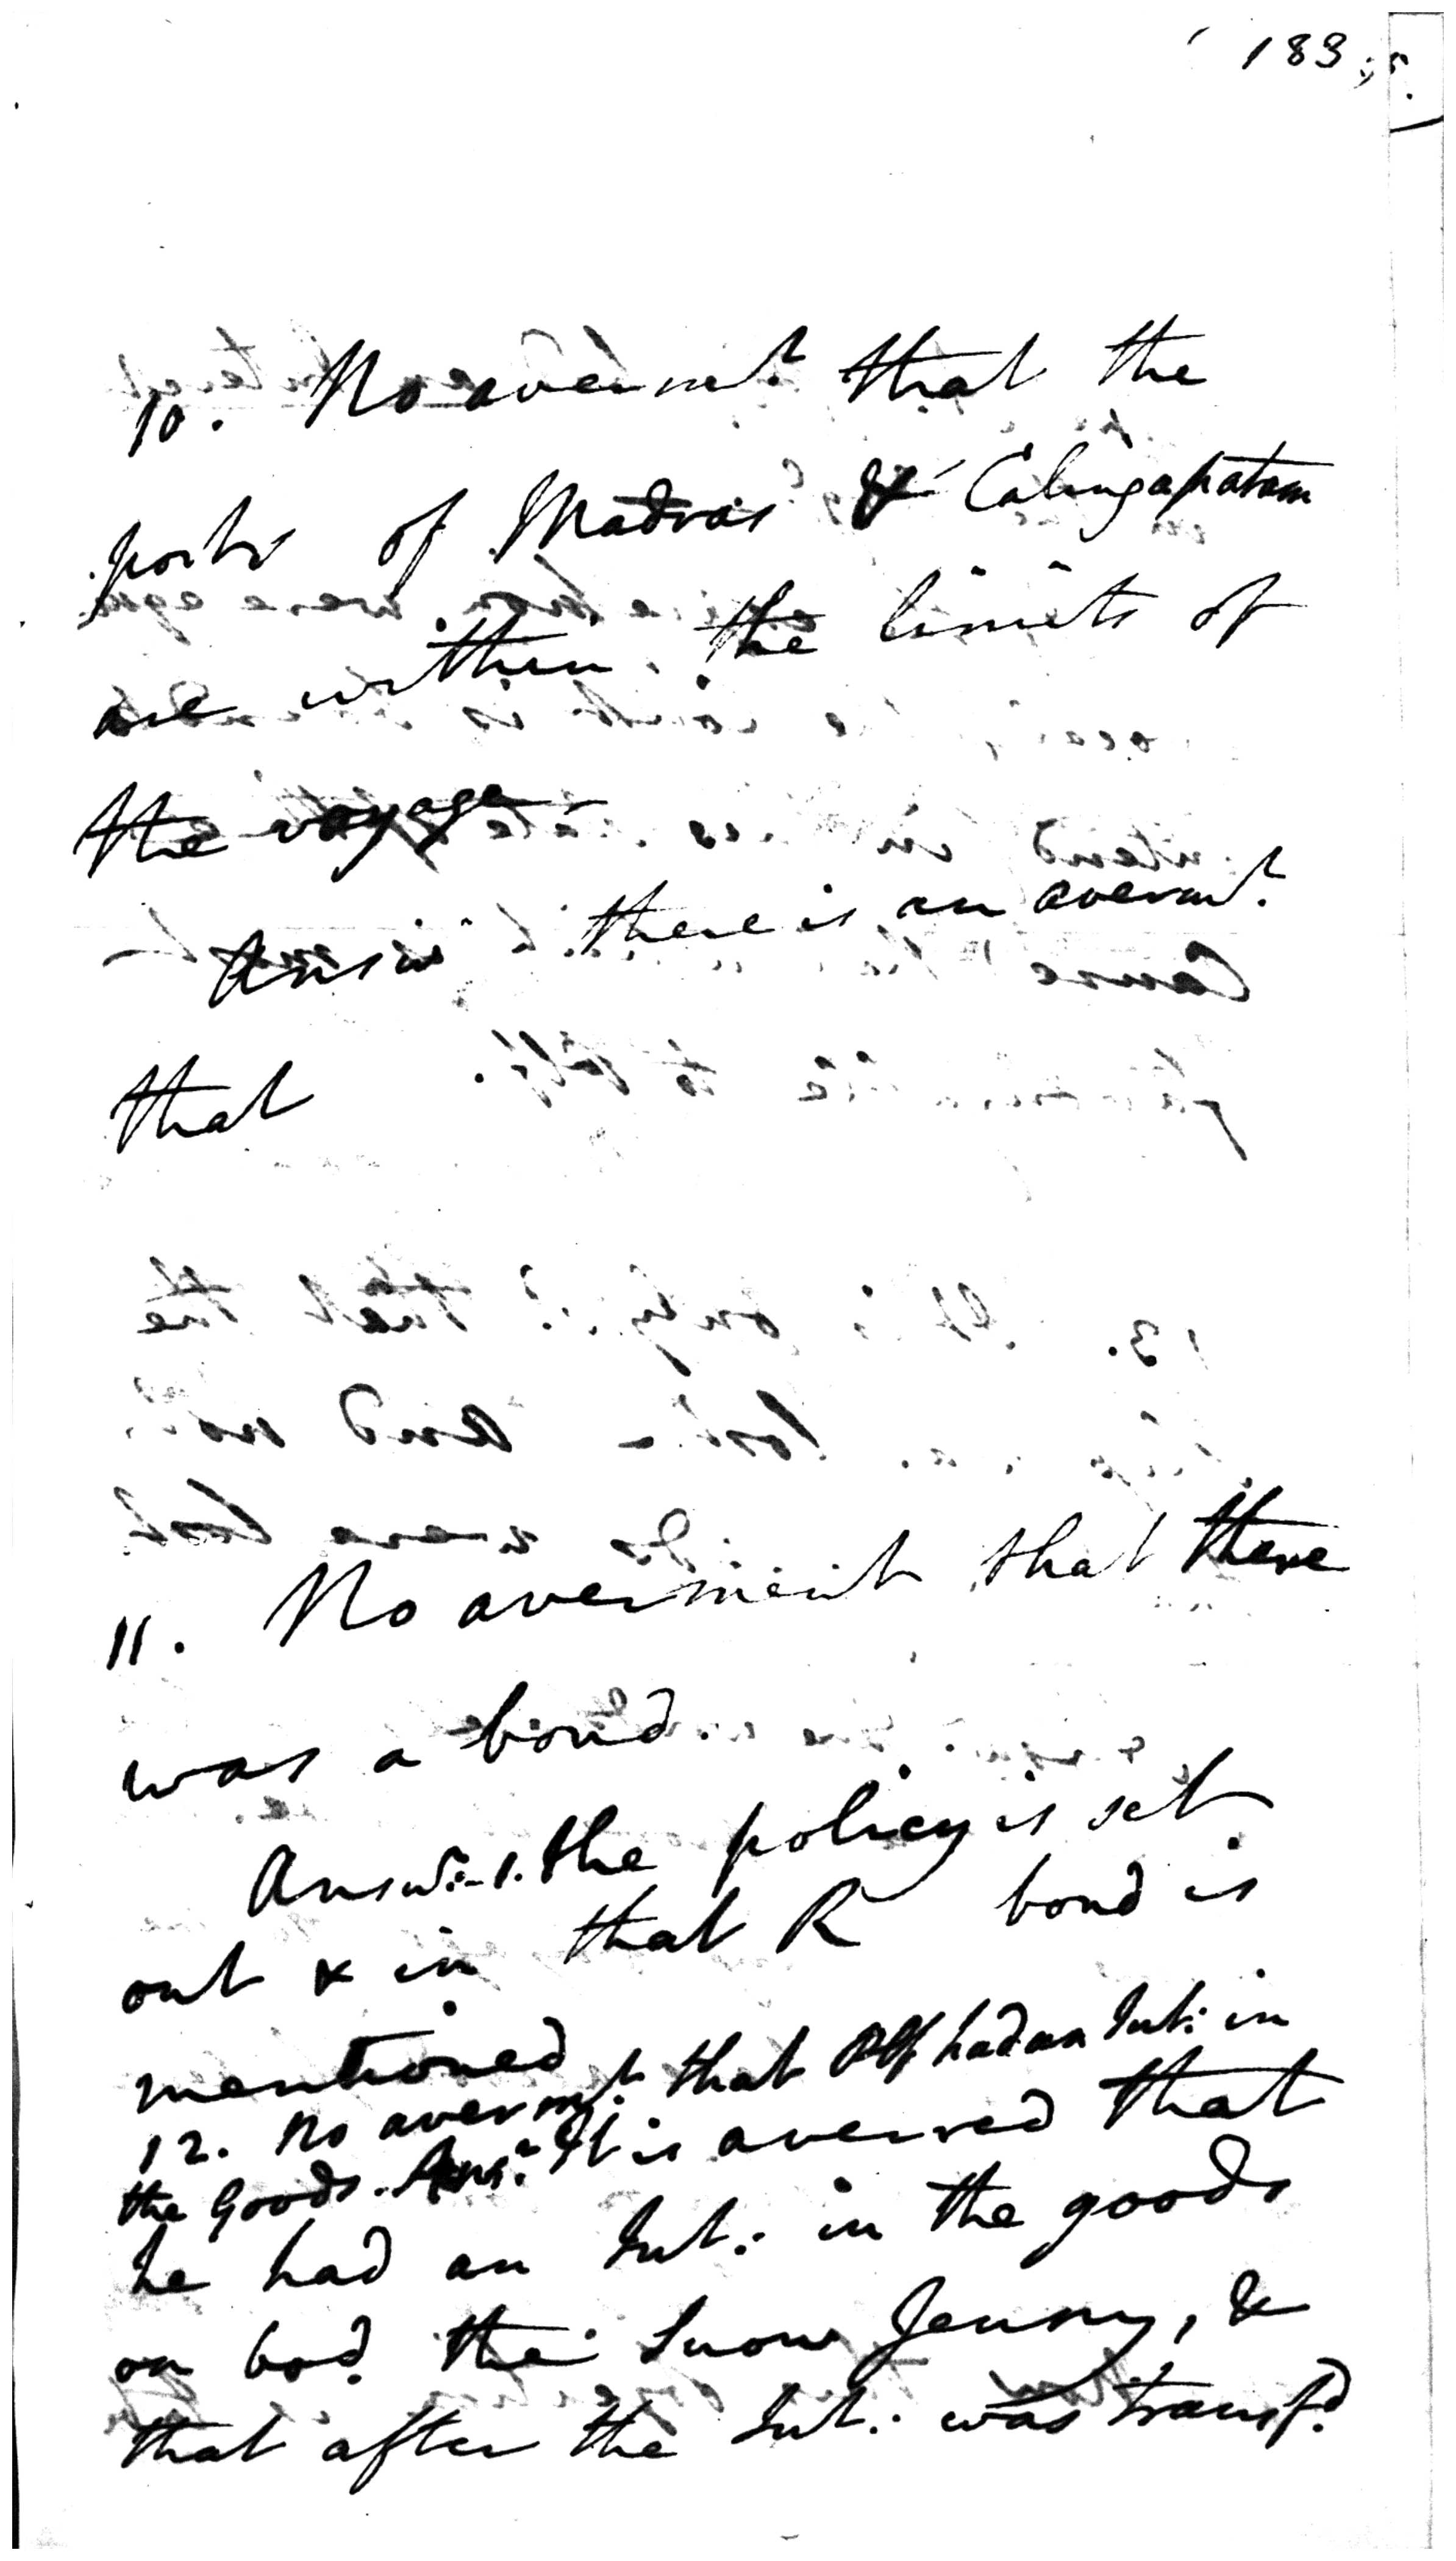 183
10. No avermt. that the
ports of Madras & Calingapatam
are within the limits of
the voyage
Answ. there is an avermt.
that
11. No averment that there
was a bond.
Answr. 1. the policy is set
out & in that R bond is
mentioned
12. No avermt. that Plf had an Int: in
the Goods. Ansr. It is averred that
he had an Int: in the goods
on bod. the Snow Jenny, &
that after the Int: was transfd.